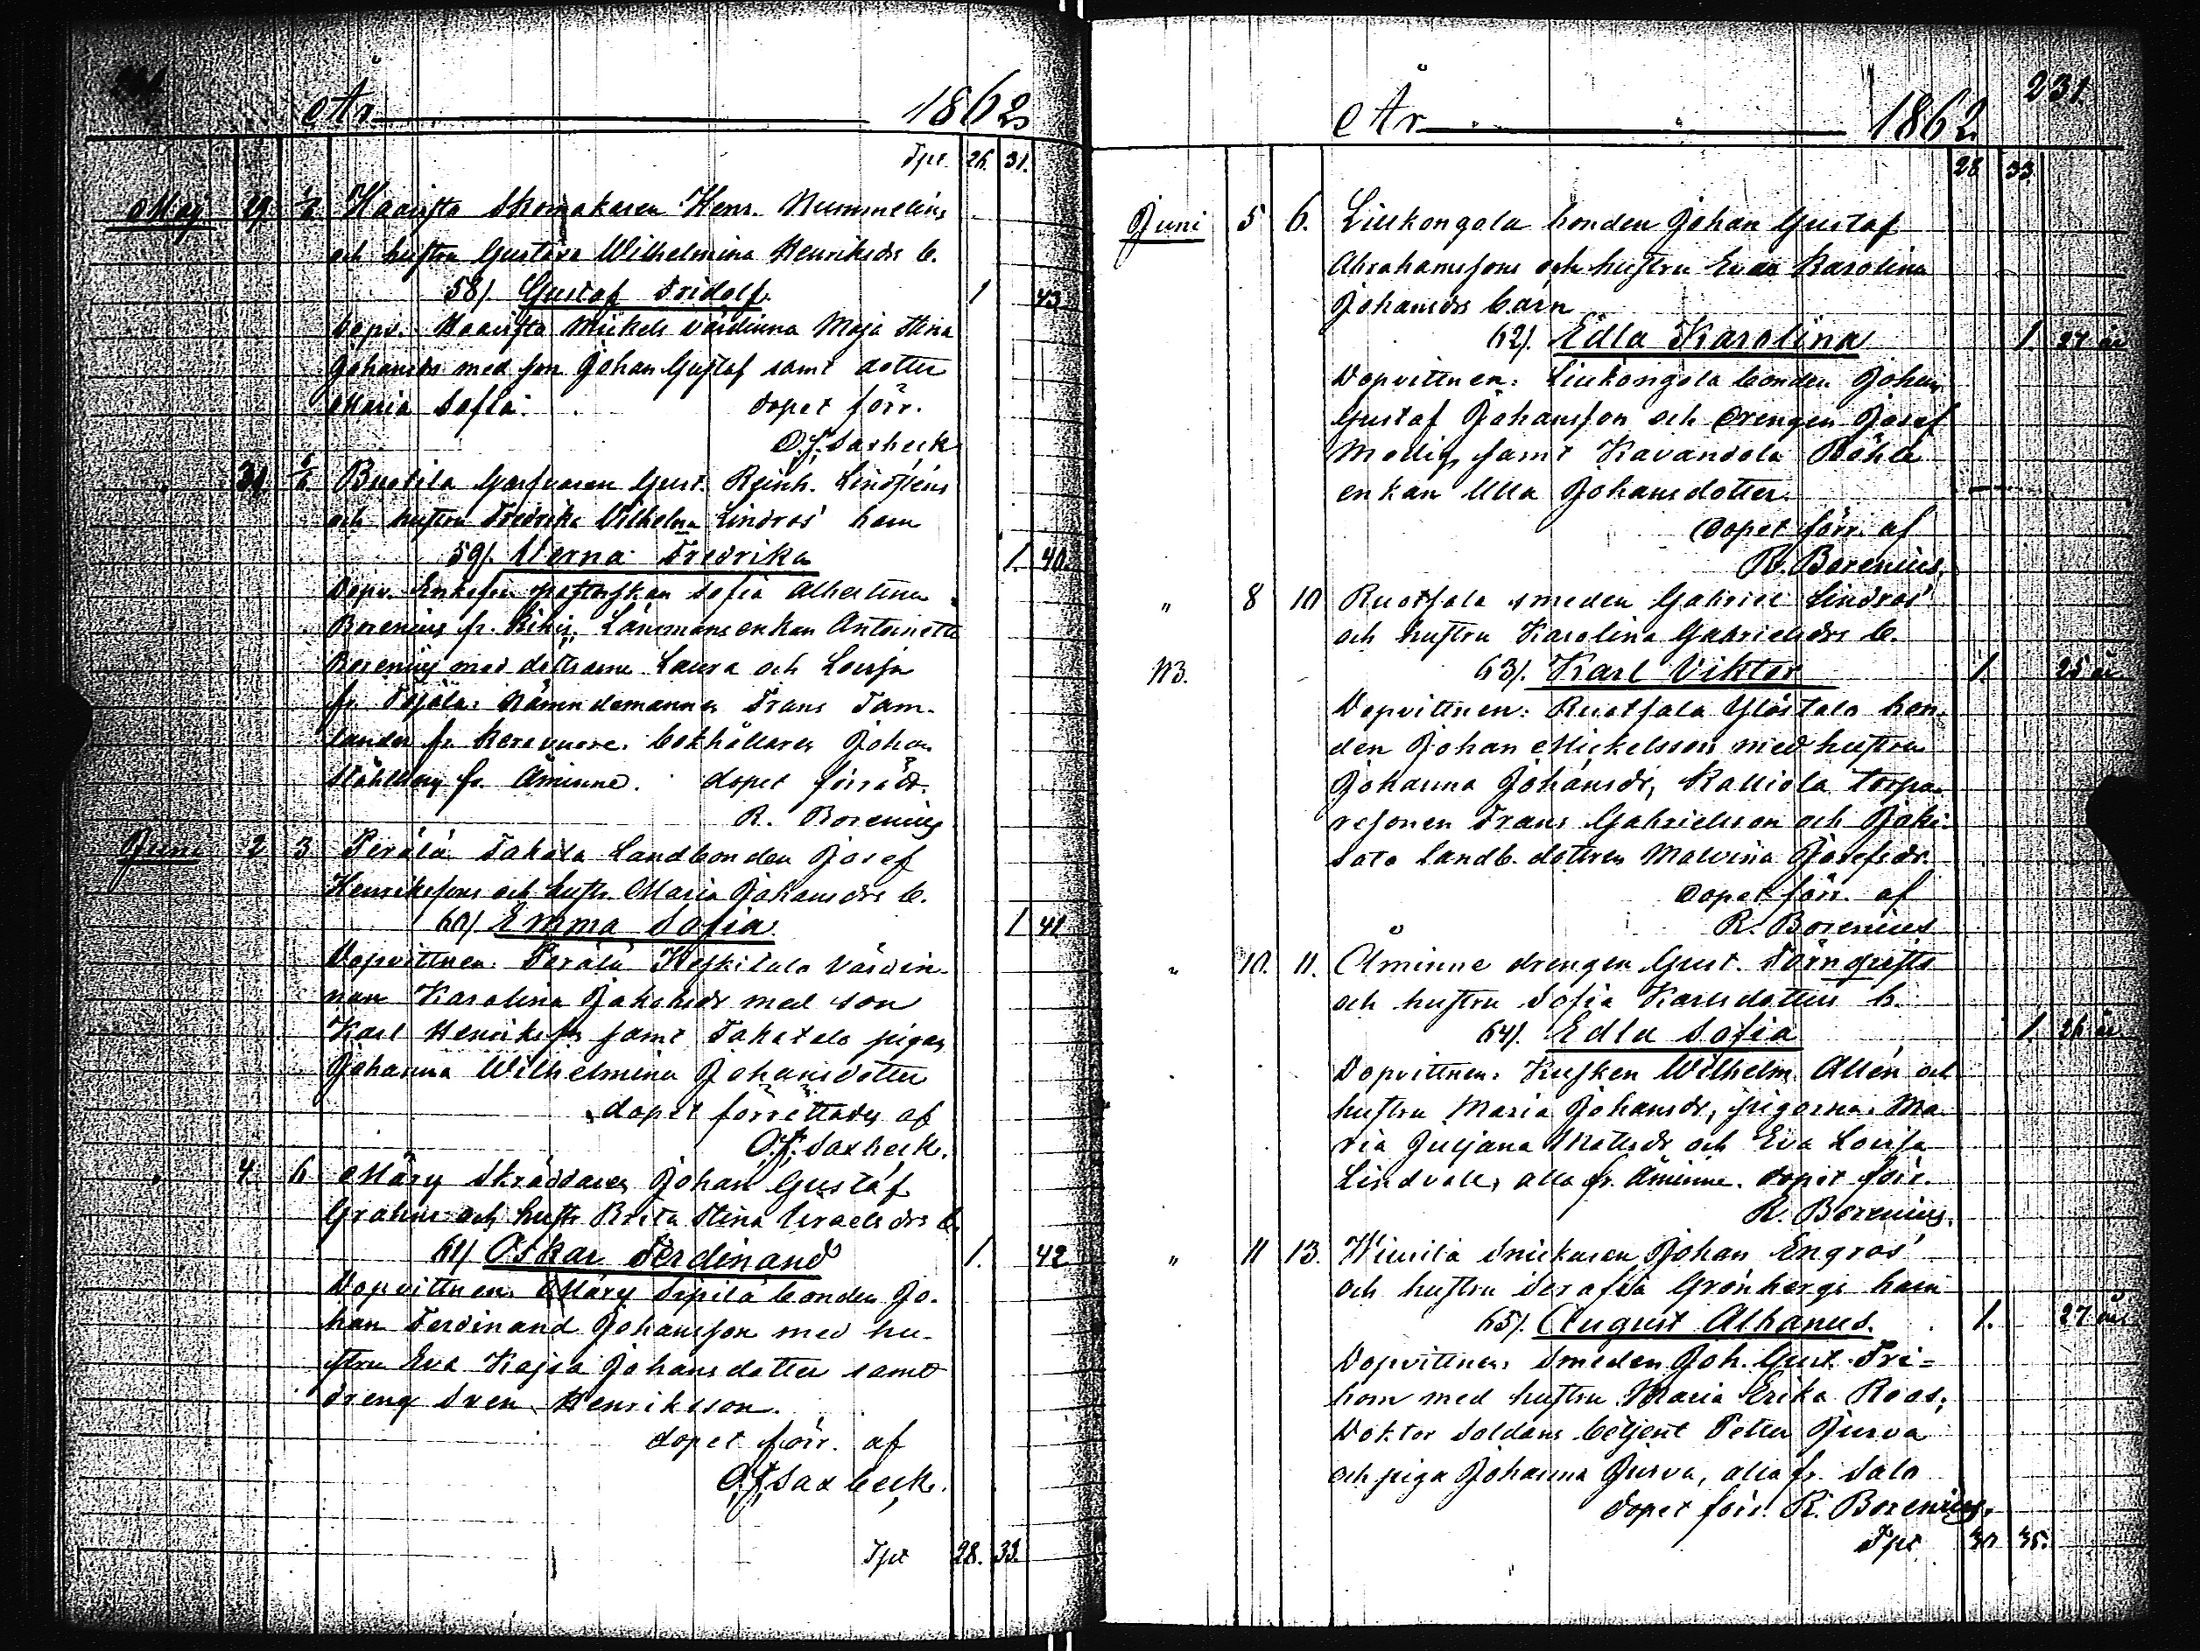 År 1862
Tpt. 26. 31.
Maj 29. 1/6 Haavisto Skomakaren Henr. Nummelins
och hustru Gustava Wilhelmina Henriksdrs b.
58). Gustaf Fridolf. 1 43
Dopv. Haavisto Mickels värdinna Maja Stina
Johansdr med son Johan Gustaf samt dotter
Maria Sofia. dopet förr.
O. F. Saxbeck
" 31 Buotila Garfvaren Gust. Reinh.
och hustru Fredrika Vilhelma Lindros' barn
59). Verna Fredrika 1. 40.
Dopv. Sofia Albertina
Borenius fr. Länsmansenkan Antoinette
Borenius med döttrarne Laura och Lovisa
fr. Nämndemannen Frans Tam-
lander fr. bokhållaren Johan
Ståhlberg fr. Åminne. dopet förrätt.
R. Borenius
Juni 2 3 Perälä Takala Landbonden Josef
Henrikssons och hustr. Maria Johansdrs b.
60) Emma Sofia 1 41
Dopvittnen: Perälä Keskitalo värdin-
nan Karolina Johansdr med son
Karl Henriksson samt Takatalo pigan
Johanna Wilhelmina Johansdotter
dopet förrättades af
O. F. Saxbeck.
" 4. 6 Märy Skräddaren Johan Gustaf
Grahns och hustr Brita Stina Israelsdrs b.
61) Oskar Ferdinand 1. 42
Dopvittnen: Märy Sipilä bonden Jo-
han Ferdinand Johansson med hu-
stru Eva Kajsa Johansdotter samt
dreng Sven Henriksson.
dopet förr. af
O. F. Saxbeck.
Tpt 28. 33.
År 1862 231.
28 33
Juni 5 6. Liukongola bonden Johan Gustaf
Abrahamssons och hustru Eva Karolina
Johansdrs barn
62). Edla Karolina 1. 27 år
Dopvittnen: Liukongola bonden Johan
Gustaf Johansson och Drengen Josef
Modig samt Kavandola Böhle
enkan Ulla Johansdotter.
Dopet förr. af
R. Borenius.
" 8 10 Ruotsala smeden Gabriel Lindros'
och hustru Karolina Gabrielsdrs b.
NB. 63). Karl Viktor 1. 25 år
Dopvittnen: Ruotsala Ylöstalo bon-
den Johan Mickelsson med hustru
Johanna Johansdr, Kalliola torpa-
resonen Frans Gabrielsson och Joki-
sato landb. dottren Malvina Josefsdr.
Dopet förr. af
R. Borenius
" 10. 11. Åminne drengen Gust. Törnqvists
och hustru Sofia Karlsdotters b.
64). Edla Sofia 1. 26 år
Dopvittnen: Kusken Wilhelm Allén och
hustru Maria Johansdr, pigorna Ma-
ria Juljana Matsdr och Eva Lovisa
Lindvall, alla fr. Åminne. Dopet förr.
R. Borenius.
" 11 13. Wiurila Snickaren Johan Engros'
och hustru Serafia Grönbergs barn
65). August Albanus. 1. 27 år
Dopvittnen: Smeden Joh. Gust. Fri=
bom med hustru Maria Erika Roos,
Doktor Soldans betjent Petter Jurva
och piga Johanna Jurva, alla fr. Salo
Dopet förr. R. Borenius.
Tpt 30 35.